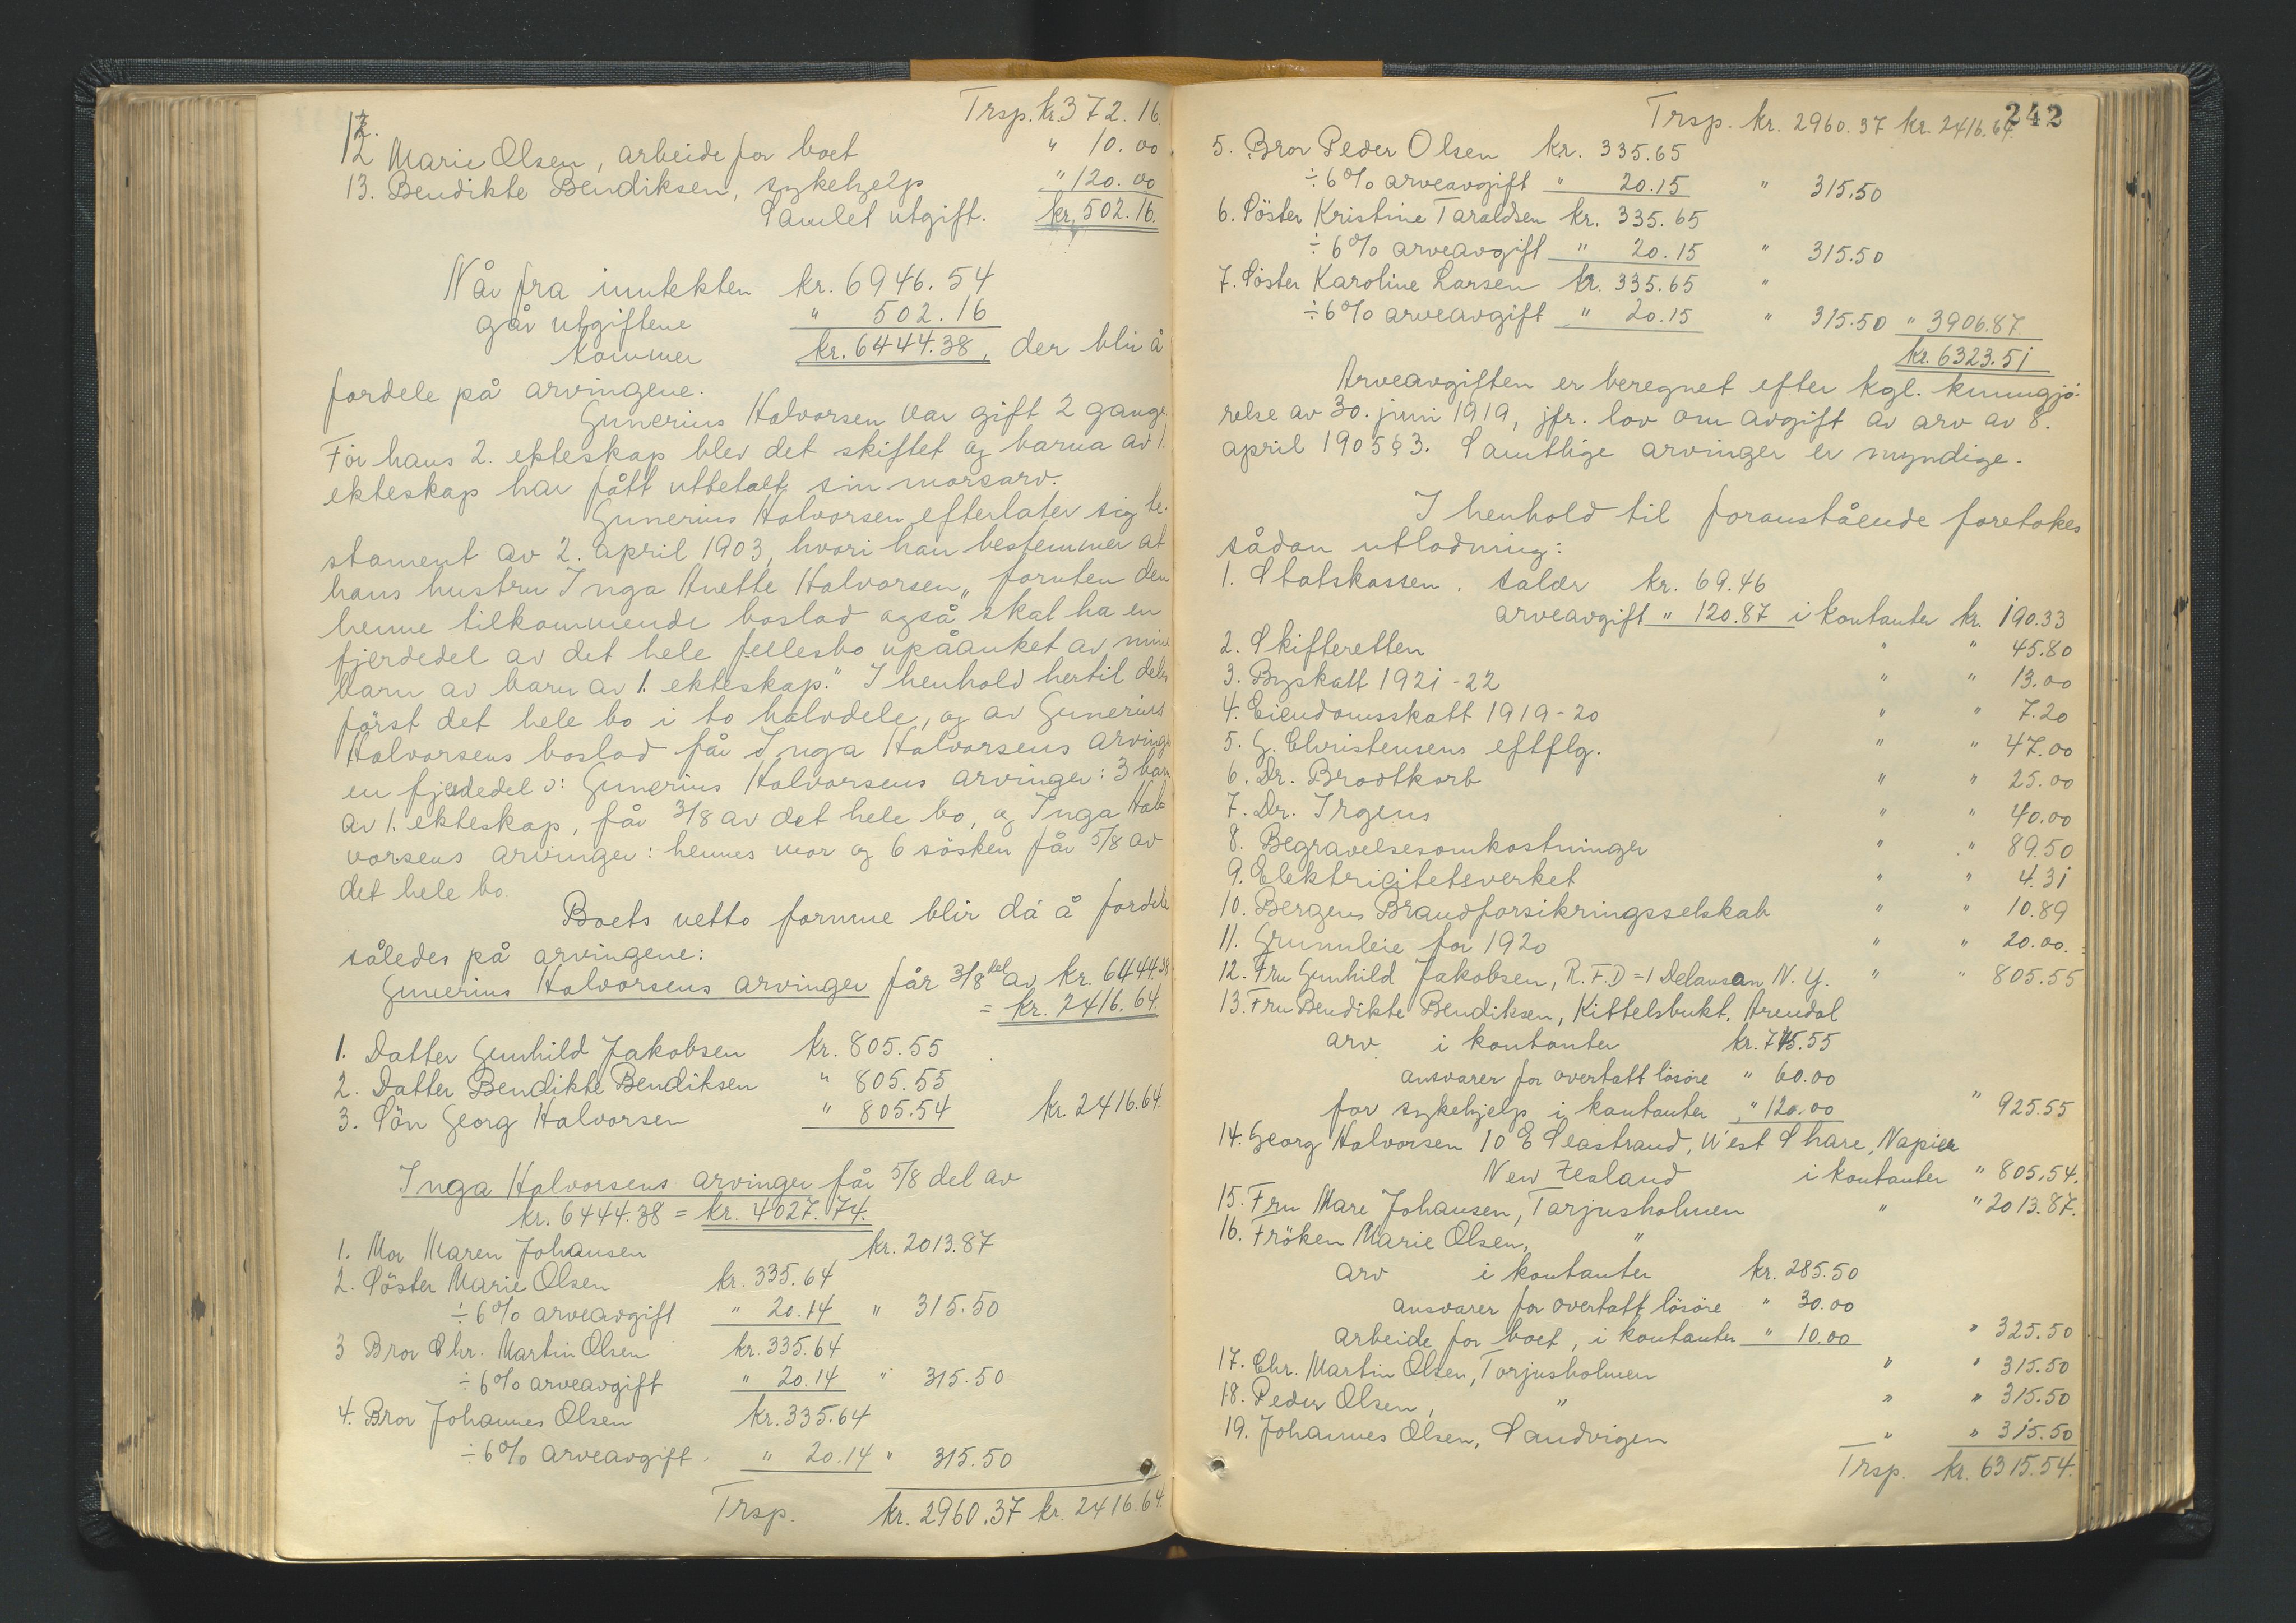 Trsp. kr. 372.16.
12 Marie Olsen, arbeide for boet " 10.00
13. Bendikte Bendiksen, sykehjelp " 120.00
Samlet utgift. kr. 502.16.
Når fra inntekten kr. 6946.54
går utgiftene " 502.16
kommer kr. 6444.38, der blir å
fordele på arvingene.
Gunerius Halvorsen var gift 2 gange.
Før hans 2. ekteskap blev det skiftet og barna av 1.
ekteskap har fått utbetalt sin morsarv.
Gunerius Halvorsen efterlater sig te-
stament av 2. april 1903, hvori han bestemmer at
hans hustru Inga Anette Halvorsen „foruten den
henne tilkommende boslod også skal ha en
fjerdedel av det hele fellesbo upåanket av mine
barn av barn av 1. ekteskap." I henhold hertil deles
først det hele bo i to halvdele, og av Gunerius
Halvorsens boslod får Inga Halvorsens arvinger
en fjerdedel ɔ: Gunerius Halvorsens arvinger: 3 barn
av 1. ekteskap, får 3/8 av det hele bo, og Inga Hal-
vorsens arvinger: hennes mor og 6 søsken får 5/8 av
det hele bo.
Boets netto formue blir da å fordele
således på arvingene:
Gunerius Halvorsens arvinger får 3/8 del av kr. 6444.38
= kr. 2416.64.
1. Datter Gunhild Jakobsen kr. 805.55
2. Datter Bendikte Bendiksen " 805.55
3. Søn Georg Halvorsen " 805.54 kr. 2416.64.
Inga Halvorsens arvinger får 5/8 del av
kr. 6444.38 = kr. 4027.74.
1. Mor Maren Johansen kr. 2013.87
2. Søster Marie Olsen kr. 335.64
÷ 6% arveavgift " 20.14 " 315.50
3 Bror Chr. Martin Olsen kr. 335.64
÷ 6% arveavgift " 20.14 " 315.50
4. Bror Johannes Olsen kr. 335.64
÷ 6% arveavgift. " 20.14 " 315.50
Trsp. kr. 2960.37 kr. 2416.64.
242
Trsp. kr. 2960.37 kr. 2416.64.
5. Bror Peder Olsen kr. 335.65
÷ 6% arveavgift " 20.15 " 315.50
6. Søster Kristine Taraldsen kr. 335.65
÷ 6% arveavgift " 20.15 " 315.50
7. Søster Karoline Larsen kr. 335.65 "
÷ 6% arveavgift " 20.15 " 315.50 " 3906.87
kr. 6323.51
Arveavgiften er beregnet efter kgl. kunngjö-
relse av 30. juni 1919, jfr. lov om avgift av arv av 8.
april 1905 § 3. Samtlige arvinger er myndige.
I henhold til foranstående foretakes
sådan utlodning:
1. Statskassen. salær kr. 69.46
arveavgift " 120.87 i kontanter kr. 190.33
2. Skifteretten " " 45.80
3. Byskatt 1921-22 " " 13.00
4. Eiendomsskatt 1919-20 " " 7.20
5. G. Christensens eftflg. " " 47.00
6. Dr. Brodtkorb " " 25.00
7. Dr. Irgens " " 40.00
8. Begravelsesomkostninger " " 89.50
9. Elektricitetsverket " " 4.31
10. Bergens Brandforsikringsselskab " " 10.89
11. Grunnleie for 1920 " " 20.00.
12. Fru Gunhild Jakobsen, R.F.D=1 Delansan N.Y. " " 805.55
13. Fru Bendikte Bendiksen, Kittelsbukt, Arendal
arv i kontanter kr. 745.55
ansvarer for overtatt løsøre " 60.00
for sykehjelp i kontanter " 120.00 " 925.55
14. Georg Halvorsen 10 E Seastrand, West Share, Napier
New Zealand i kontanter " 805.54.
15. Fru Mare Johansen, Tarjusholmen " " 2013.87.
16. Frøken Marie Olsen, "
arv i kontanter kr. 285.50
ansvarer for overtatt løsøre " 30.00
arbeide for boet, i kontanter " 10.00 " 325.50
17. Chr. Martin Olsen, Torjusholmen " " 315.50
18. Peder Olsen, " " " 315.50
19. Johannes Olsen, Sandvigen " " 315.50
Trsp. kr. 6315.54.